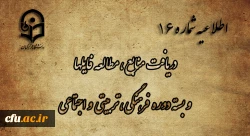 اطلاعیه شماره ۱۶
دریافت منابع، مطالعه فایلها
و بسته دوره فرهنگی، تربیتی و اجتماعی
cfu.ac.ir